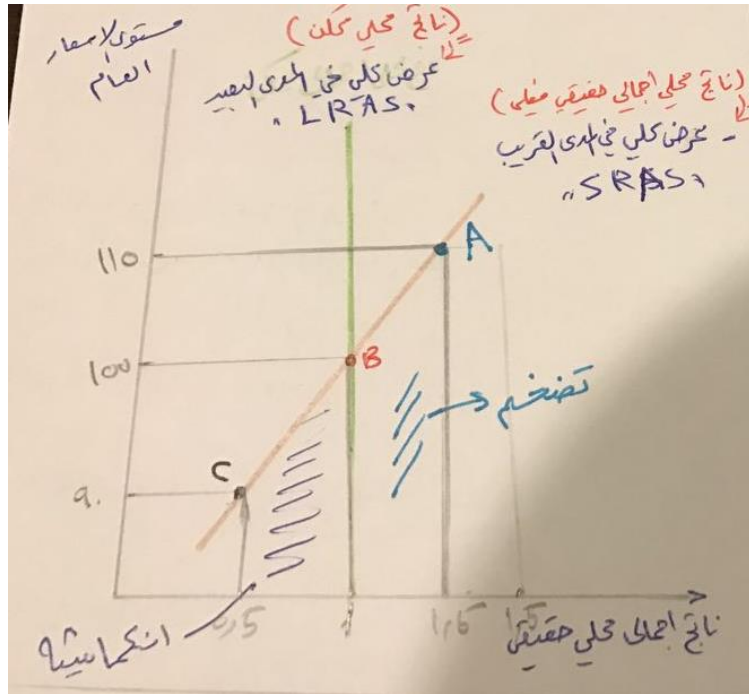 مستوى الاسعار
العام
(ناتج محلي ممكن)
عرض كلي في المدى البعيد
"LRAS"
(ناتج محلي اجمالي حقيقي فعلي)
- عرض كلي في المدى القريب
"SRAS"
110
A
100
B
تضخم
C
90
انكماشية
0,5
1
1,5
1,5
ناتج اجمالي محلي حقيقي